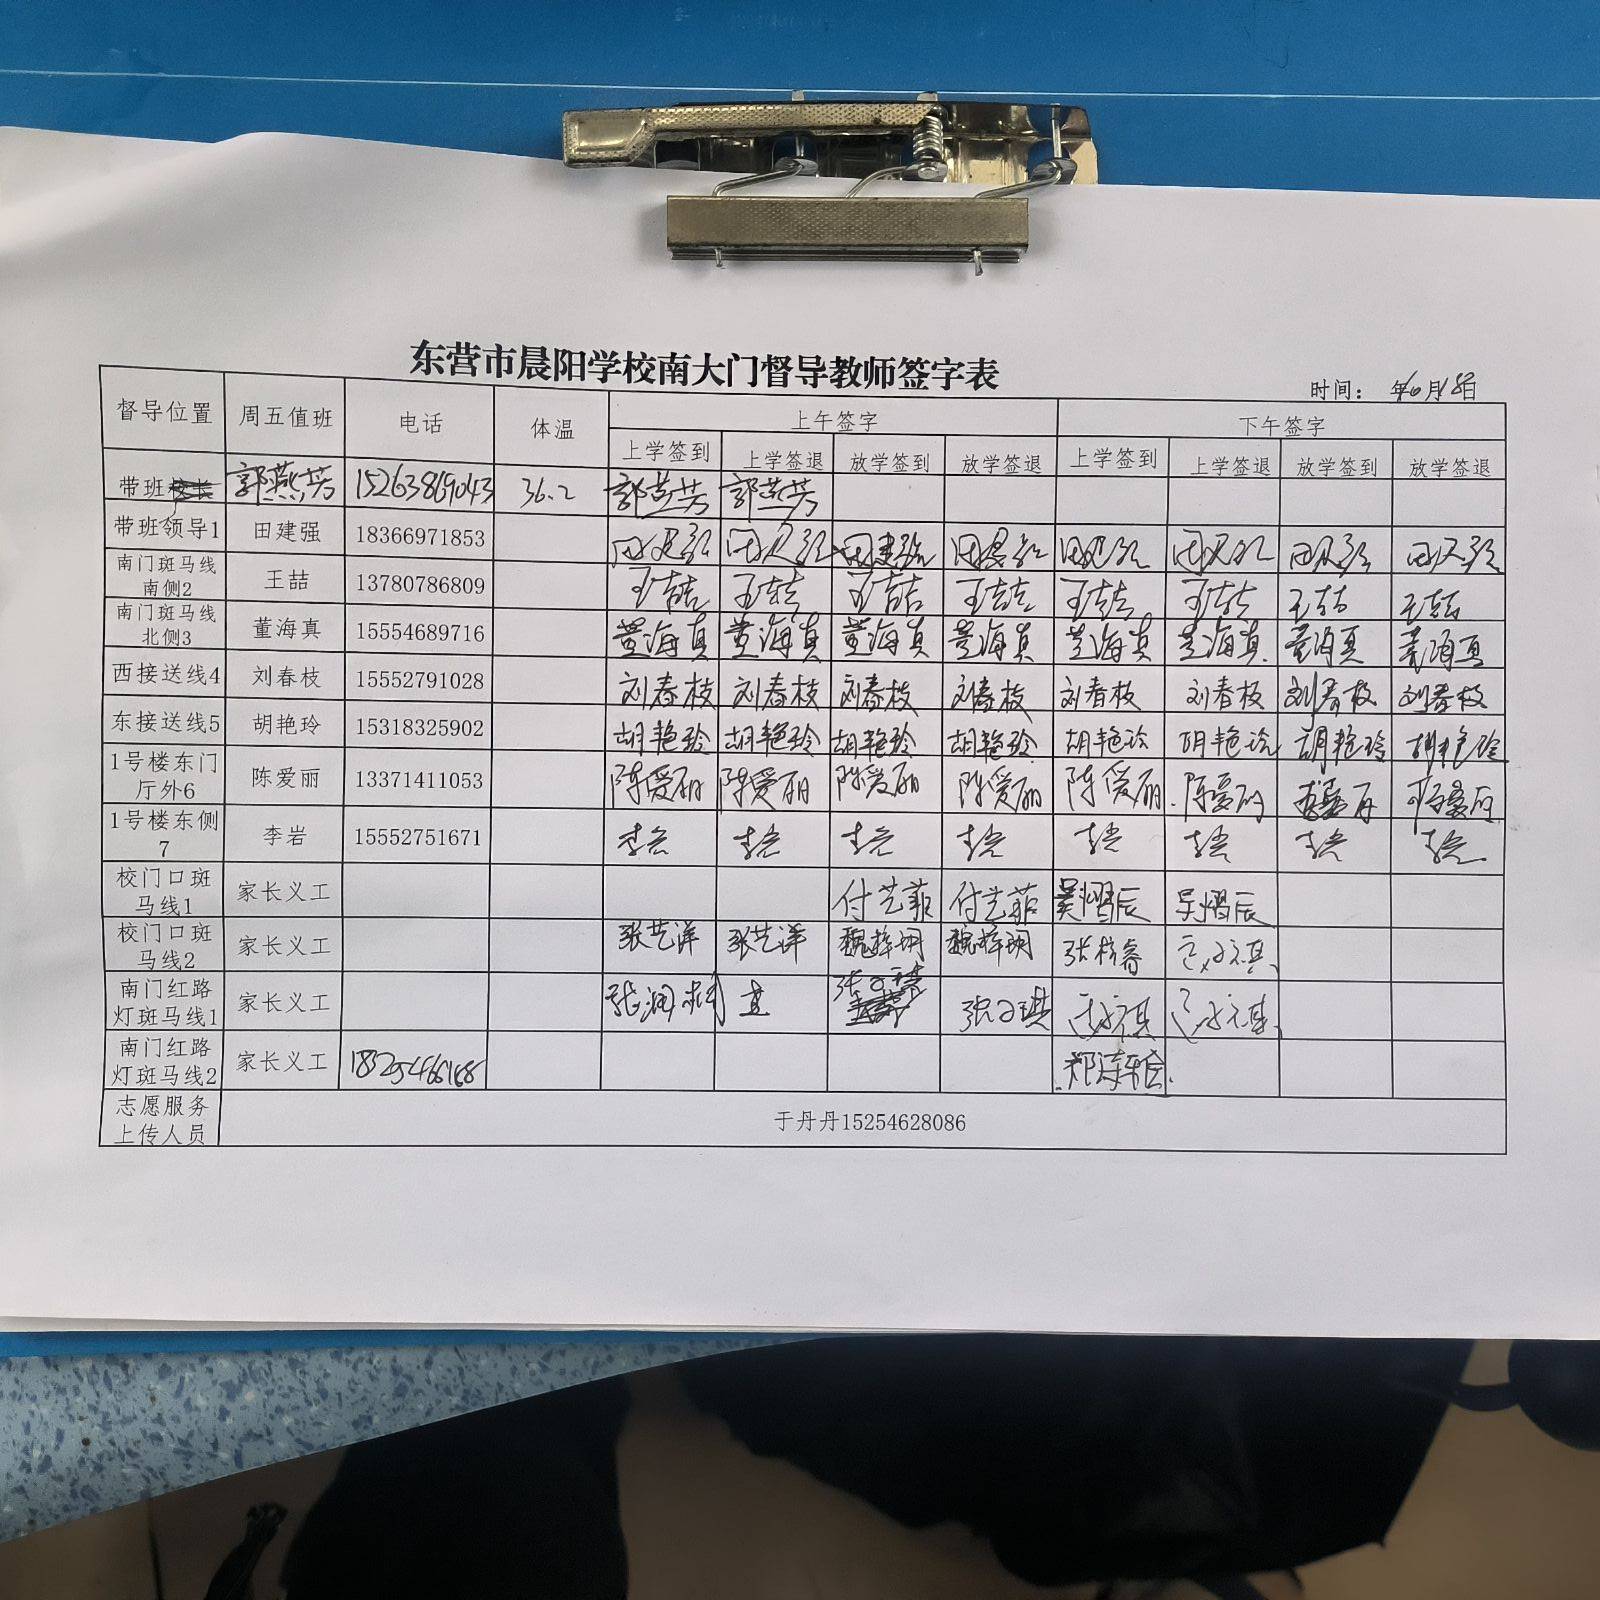 东营市晨阳学校南大门督导教师签字表
时间： 年10月18日
督导位置 周五值班 电话 体温 上午签字 下午签字
上学签到 上学签退 放学签到 放学签退 上学签到 上学签退 放学签到 放学签退
带班校长 郭燕芳 15263869043 36.2 郭燕芳 郭燕芳
带班领导1 田建强 18366971853 田建强 田建强 田建强 田建强 田建强 田建强 田建强 田建强
南门斑马线
南侧2 王喆 13780786809 王喆 王喆 王喆 王喆 王喆 王喆 王喆 王喆
南门斑马线
北侧3 董海真 15554689716 董海真 董海真 董海真 董海真 董海真 董海真 董海真 董海真
西接送线4 刘春枝 15552791028 刘春枝 刘春枝 刘春枝 刘春枝 刘春枝 刘春枝 刘春枝 刘春枝
东接送线5 胡艳玲 15318325902 胡艳玲 胡艳玲 胡艳玲 胡艳玲 胡艳玲 胡艳玲 胡艳玲 胡艳玲
1号楼东门
厅外6 陈爱丽 13371411053 陈爱丽 陈爱丽 陈爱丽 陈爱丽 陈爱丽 陈爱丽 陈爱丽 陈爱丽
1号楼东侧
7 李岩 15552751671 李岩 李岩 李岩 李岩 李岩 李岩 李岩 李岩
校门口斑
马线1 家长义工 付艺菲 付艺菲 吴熠辰 吴熠辰
校门口斑
马线2 家长义工 张艺洋 张艺洋 魏梓玥 魏梓玥
南门红路
灯斑马线1 家长义工 张子琪
南门红路
灯斑马线2 家长义工
志愿服务
上传人员 于丹丹15254628086